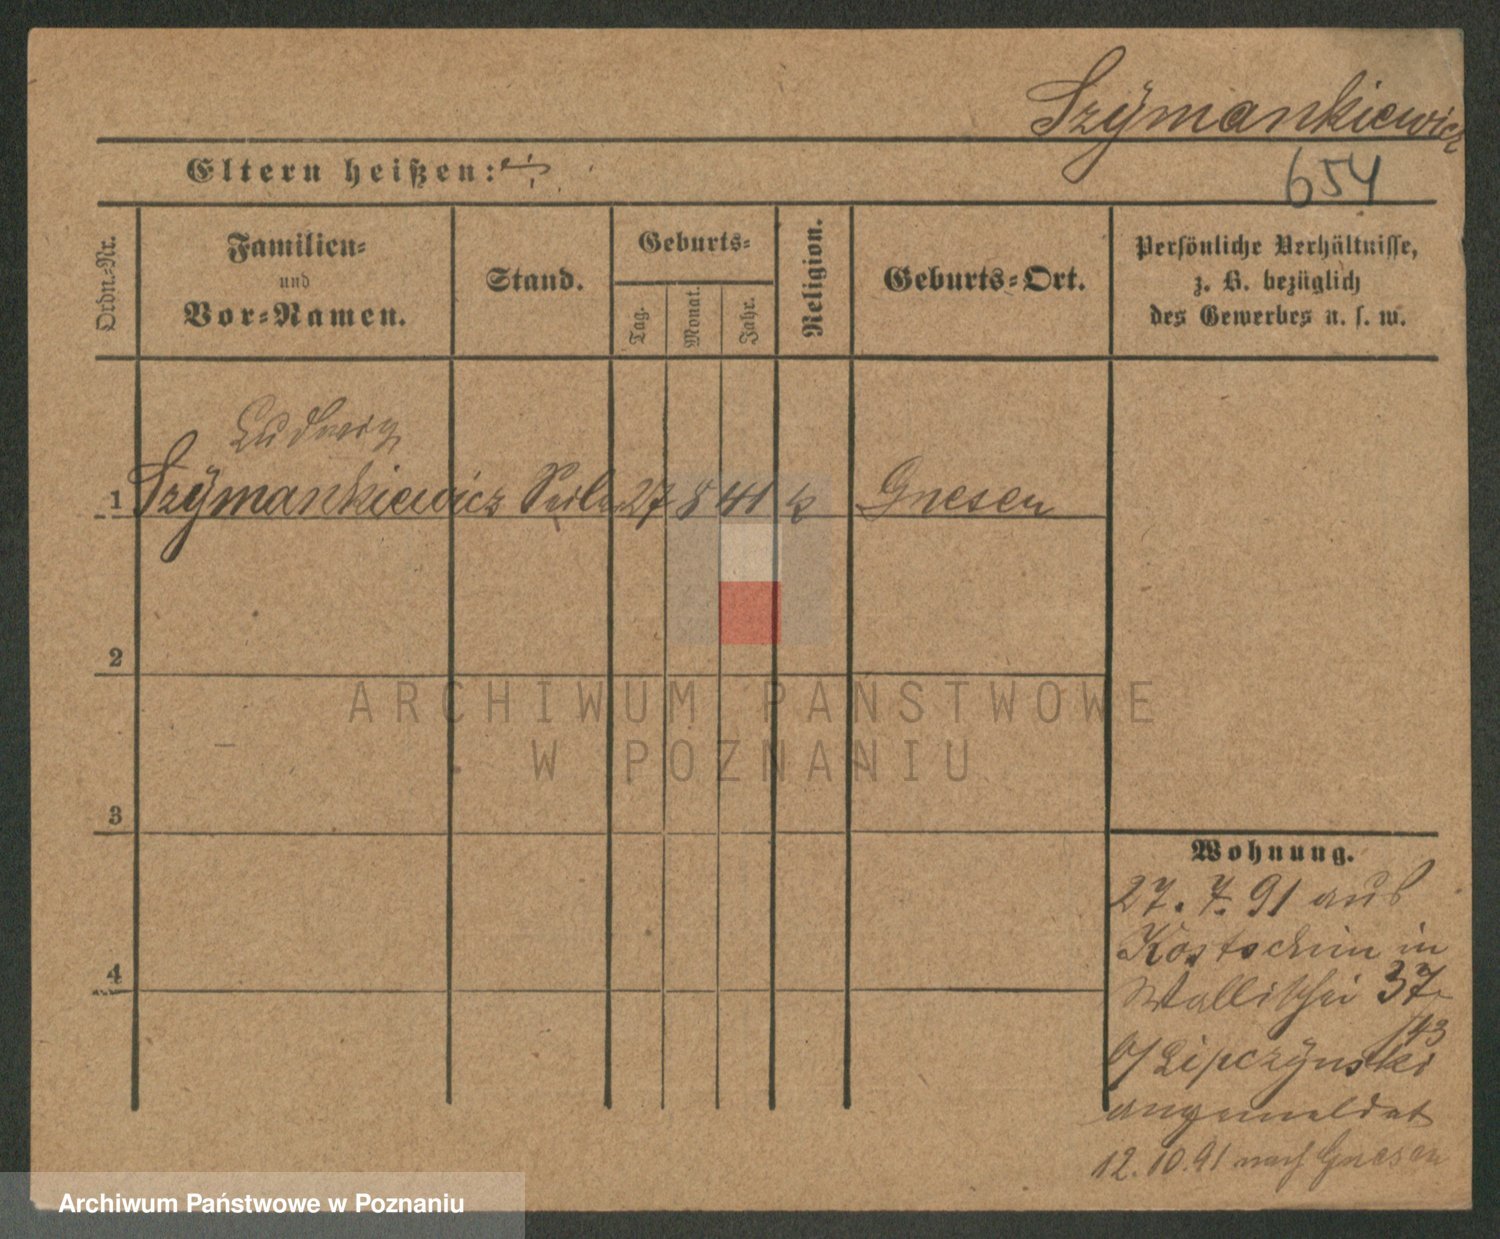 Szÿmankiewicz
Eltern heißen:
654
Ordn.=Nr.
Familien=
und
Vor=Namen.
Stand.
Geburts=
Tag.
Monat.
Jahr.
Religion.
Geburts=Ort.
Persönliche Verhältnisse,
z. B. bezüglich
des Gewerbes u. s. w.
Ludwig
1 Szÿmankiewicz Seiler 27 8 41 k Gnesen
2
ARCHIWUM PAŃSTWOWE
W POZNANIU
3
Wohnung.
27. 7. 91 aus
Kostschin in
4
Wallischei 37
b/ Lipczÿnski
angemeldet
12. 10. 91 nach Gnesen
Archiwum Państwowe w Poznaniu